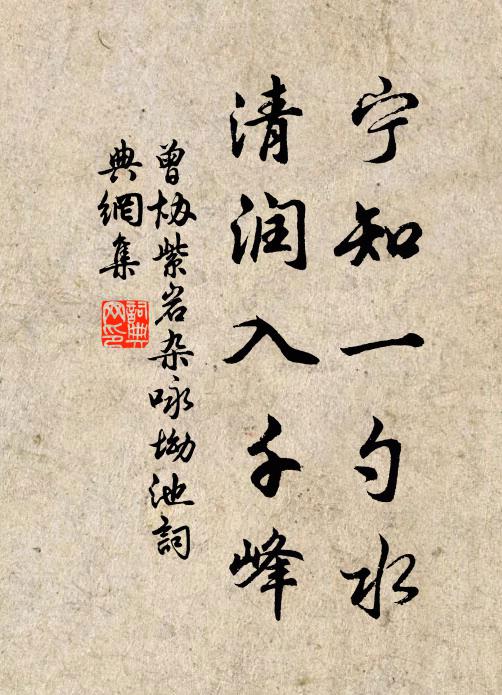 宁知一勺水
清润入千峰
曾协紫岩杂咏坳池詞
典網集
詞典
网印